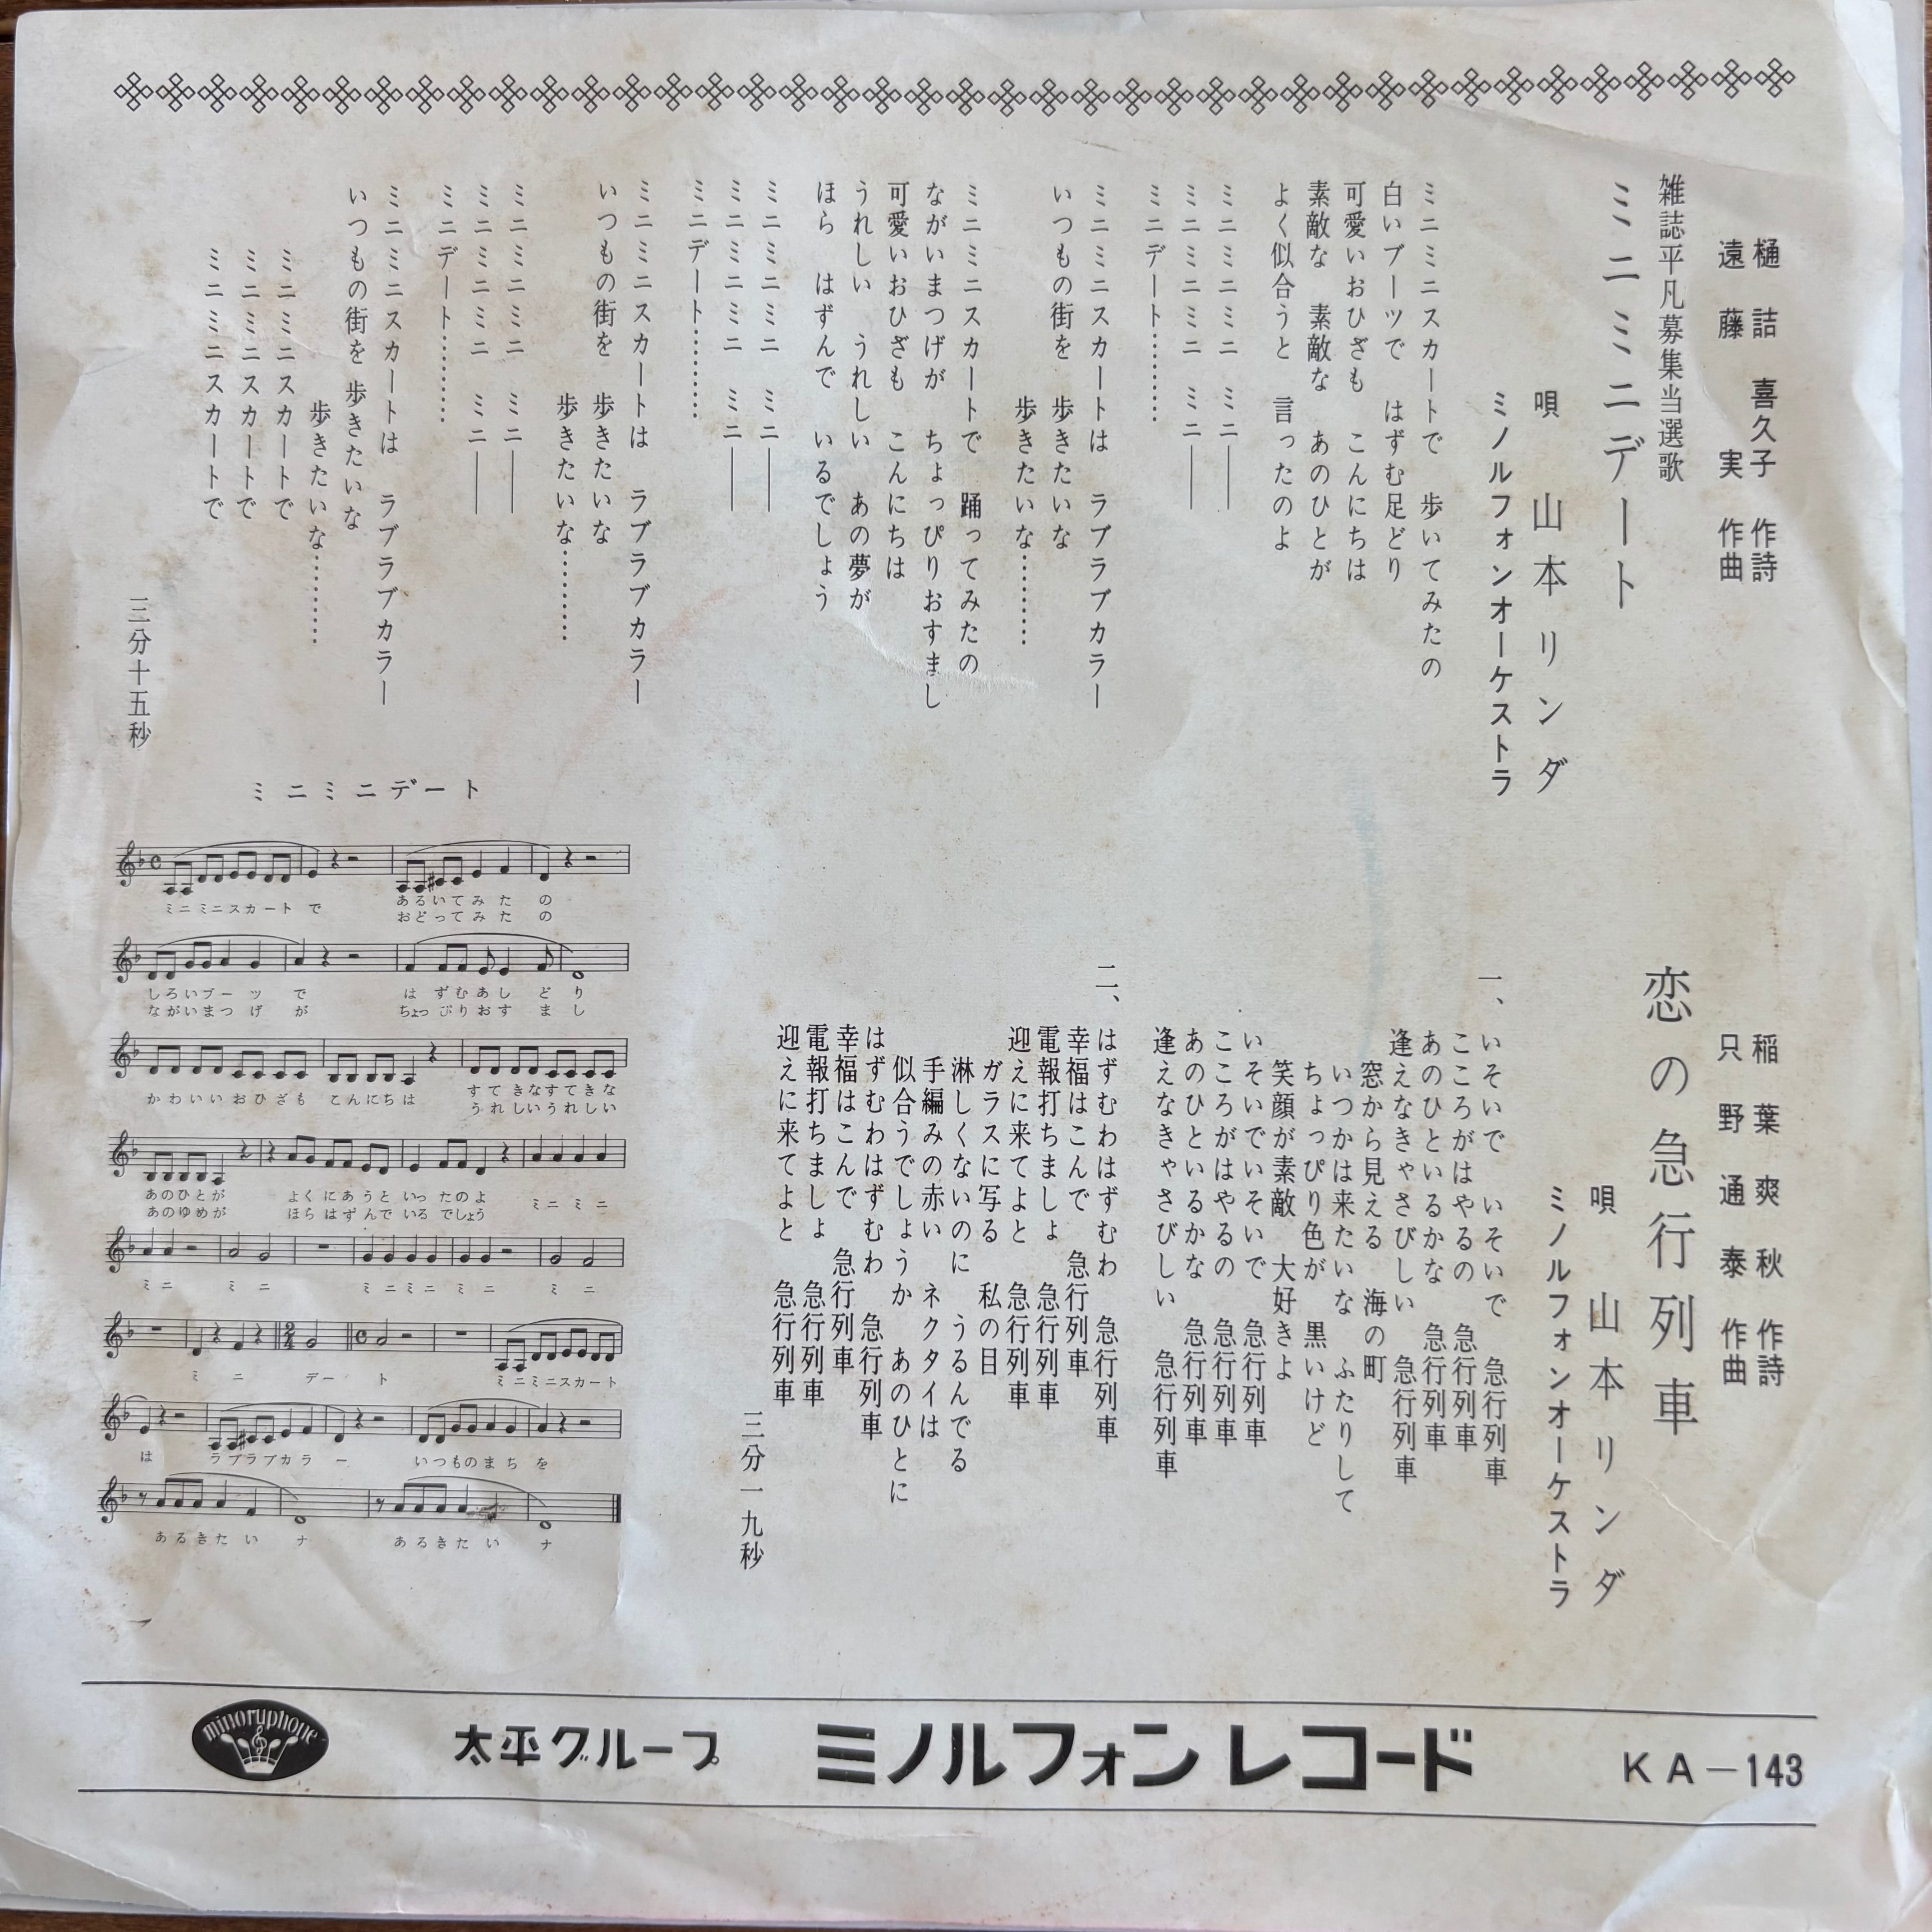 樋詰喜久子 作詩
遠藤 実 作曲
雑誌平凡募集当選歌
ミニミニデート
唄 山本リンダ
ミノルフォンオーケストラ
ミニミニスカートで 歩いてみたの
白いブーツで はずむ足どり
可愛いおひざも こんにちは
素敵な 素敵な あのひとが
よく似合うと 言ったのよ
ミニミニミニ ミニ――
ミニミニミニ ミニ――
ミニデート………
ミニミニスカートは ラブラブカラー
いつもの街を 歩きたいな
歩きたいな………
ミニミニスカートで 踊ってみたの
ながいまつげが ちょっぴりおすまし
可愛いおひざも こんにちは
うれしい うれしい あの夢が
ほら はずんで いるでしょう
ミニミニミニ ミニ――
ミニミニミニ ミニ――
ミニデート………
ミニミニスカートは ラブラブカラー
いつもの街を 歩きたいな
歩きたいな………
ミニミニミニ ミニ――
ミニミニミニ ミニ――
ミニデート………
ミニミニスカートは ラブラブカラー
いつもの街を 歩きたいな
歩きたいな………
ミニミニスカートで
ミニミニスカートで
ミニミニスカートで
三分十五秒
稲葉爽秋 作詩
只野通泰 作曲
恋の急行列車
唄 山本リンダ
ミノルフォンオーケストラ
一、
いそいで いそいで 急行列車
こころがはやるの 急行列車
あのひといるかな 急行列車
逢えなきゃさびしい 急行列車
窓から見える 海の町
いつかは来たいな ふたりして
ちょっぴり色が 黒いけど
笑顔が素敵 大好きよ
いそいでいそいで 急行列車
こころがはやるの 急行列車
あのひといるかな 急行列車
逢えなきゃさびしい 急行列車
二、
はずむわはずむわ 急行列車
幸福はこんで 急行列車
電報打ちましょ 急行列車
迎えに来てよと 急行列車
ガラスに写る 私の目
淋しくないのに うるんでる
手編みの赤い ネクタイは
似合うでしょうか あのひとに
はずむわはずむわ 急行列車
幸福はこんで 急行列車
電報打ちましょ 急行列車
迎えに来てよと 急行列車
三分一九秒
ミニミニデート
ミニミニスカートで あるいてみたの
おどってみたの
しろいブーツで はずむあしどり
ながいまつげが ちょっぴりおすまし
かわいいおひざも こんにちは すてきなすてきな
うれしいうれしい
あのひとが よくにあうといったのよ ミニミニ
あのゆめが ほらはずんでいるでしょう
ミニ ミニ ミニミニミニ ミニ
ミニ デート ミニミニスカート
は ラブラブカラー いつものまちを
あるきたいナ あるきたいナ
minoruphone
太平グループ ミノルフォンレコード KA―143